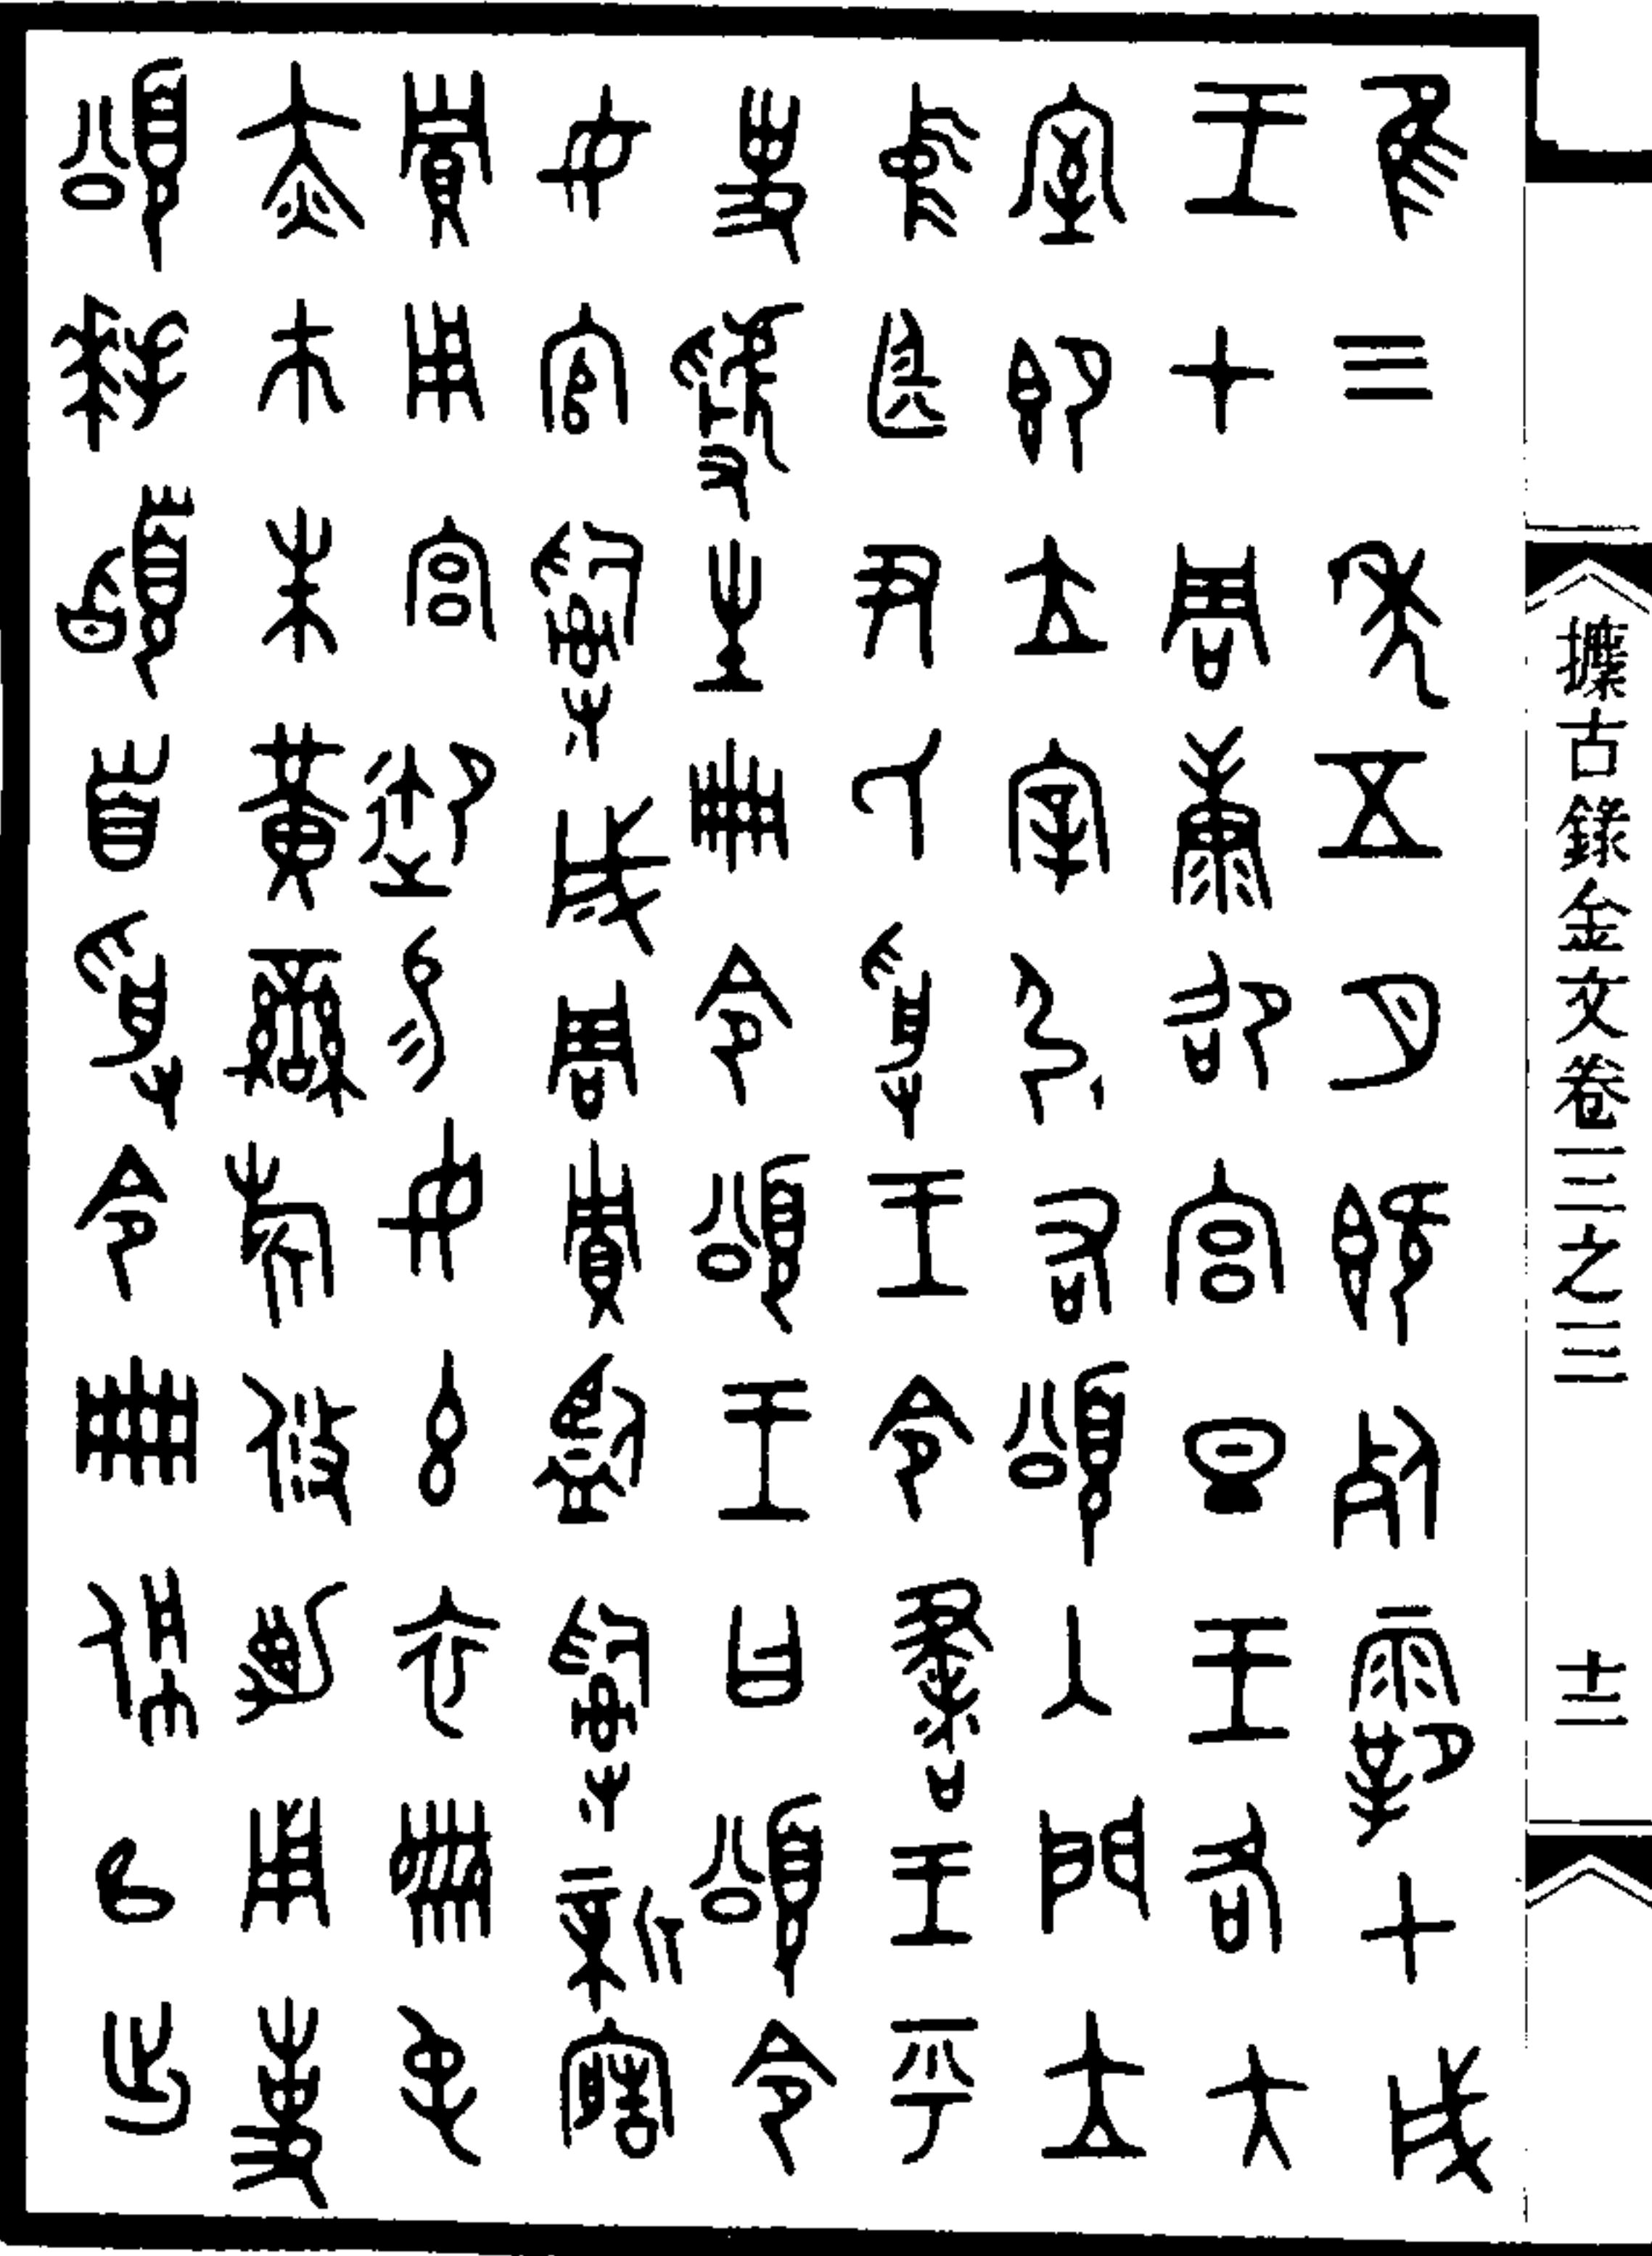 攈古錄金文卷三之三 十二
隹三年五月既死霸甲戌
王才周康卲宮旦王各大
室即立宰弘右頌入門立
中廷尹氏受王令書王乎
史虢生冊令頌王曰頌令
女官𤔲成周貯監𤔲新造
貯用宮御易女玄衣黹屯
赤巿朱黃鑾旂攸勒用事
頌拜𩒨首受令冊佩以出